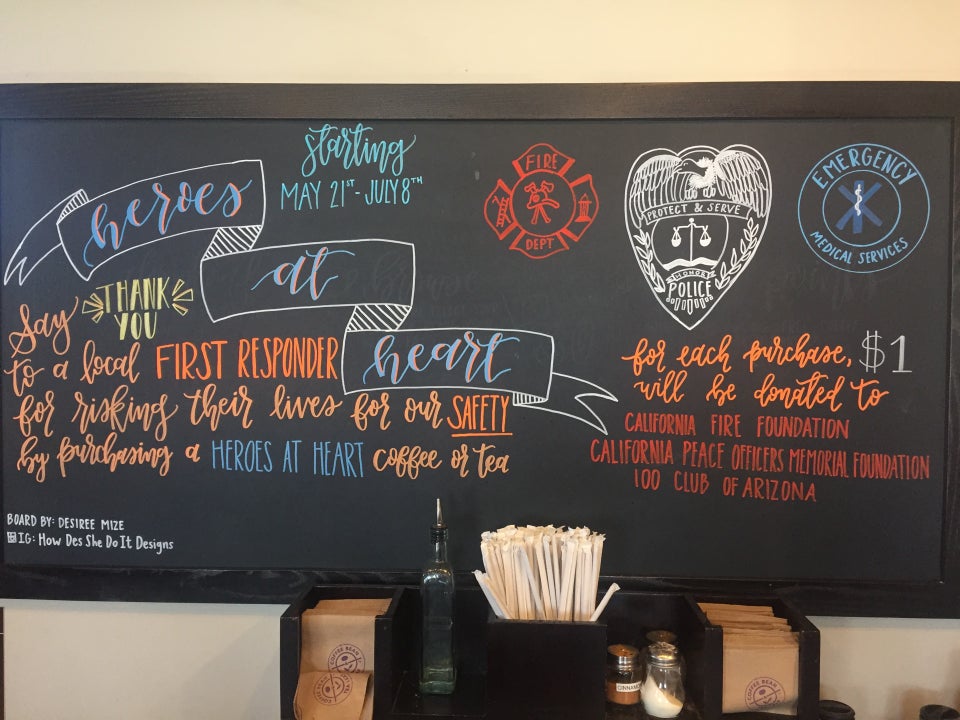 heroes
at
heart
starting
MAY 21ST - JULY 8TH
FIRE
DEPT
PROTECT & SERVE
POLICE
EMERGENCY
MEDICAL SERVICES
Say THANK YOU
to a local FIRST RESPONDER
for risking their lives for our SAFETY
by purchasing a HEROES AT HEART coffee or tea
for each purchase, $1
will be donated to
CALIFORNIA FIRE FOUNDATION
CALIFORNIA PEACE OFFICERS MEMORIAL FOUNDATION
100 CLUB OF ARIZONA
BOARD BY: DESIREE MIZE
IG: How Des She Do It Designs
COFFEE BEAN
CINNAMON
COFFEE BEAN